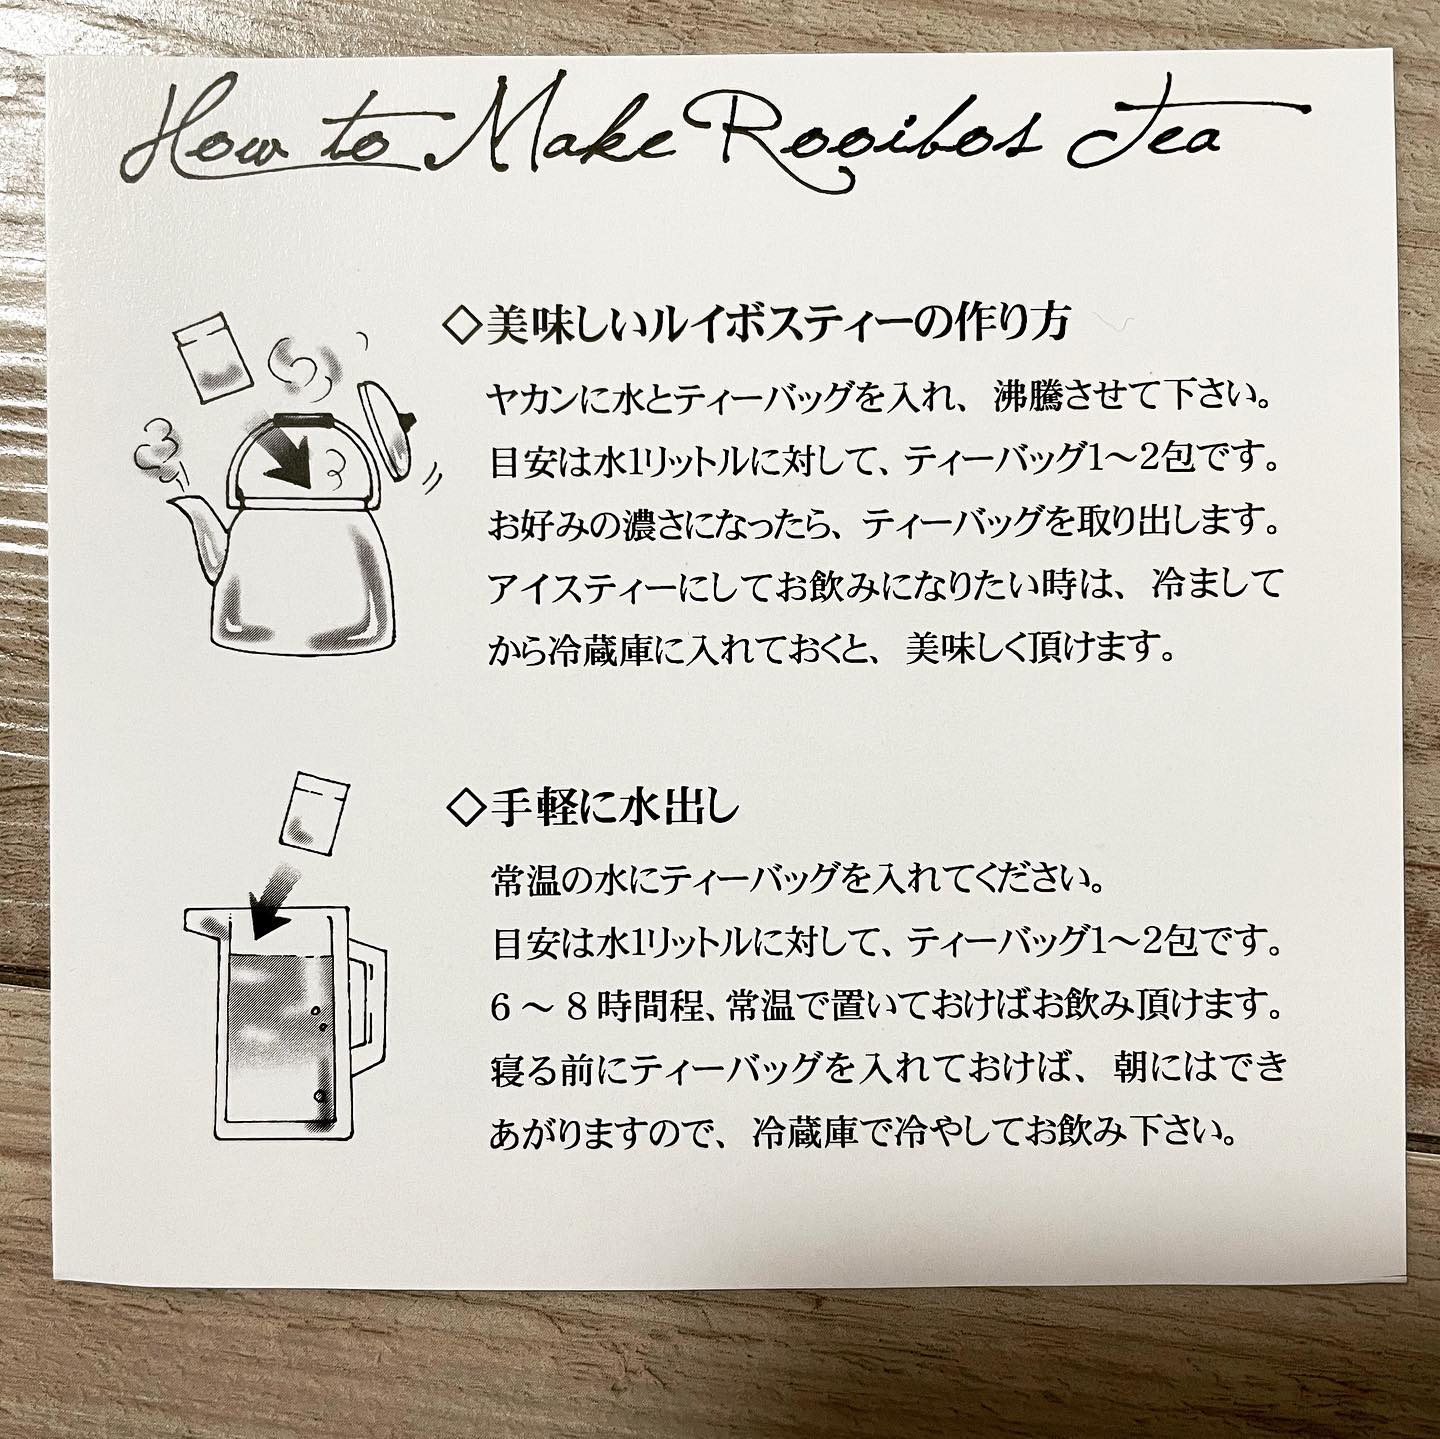 How to Make Rooibos Tea
◇美味しいルイボスティーの作り方
ヤカンに水とティーバッグを入れ、沸騰させて下さい。
目安は水1リットルに対して、ティーバッグ1～2包です。
お好みの濃さになったら、ティーバッグを取り出します。
アイスティーにしてお飲みになりたい時は、冷まして
から冷蔵庫に入れておくと、美味しく頂けます。
◇手軽に水出し
常温の水にティーバッグを入れてください。
目安は水1リットルに対して、ティーバッグ1～2包です。
6～8時間程、常温で置いておけばお飲み頂けます。
寝る前にティーバッグを入れておけば、朝にはでき
あがりますので、冷蔵庫で冷やしてお飲み下さい。